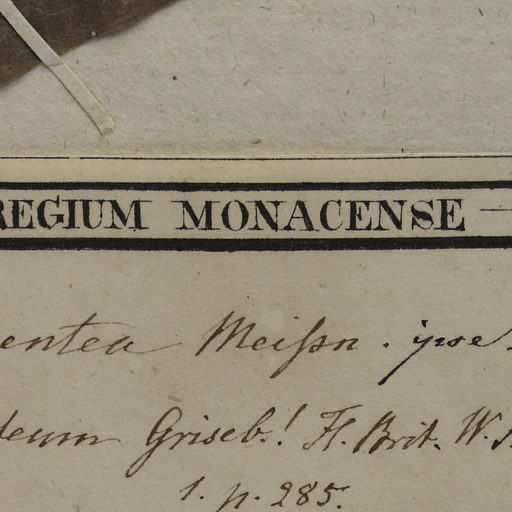 REGIUM MONACENSE
entea Meißn. ipse.
deum Griseb.! Fl. Brit. W.
1. p. 285.